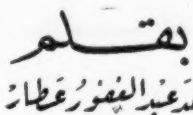 بقلم
عبد الغفور عطار